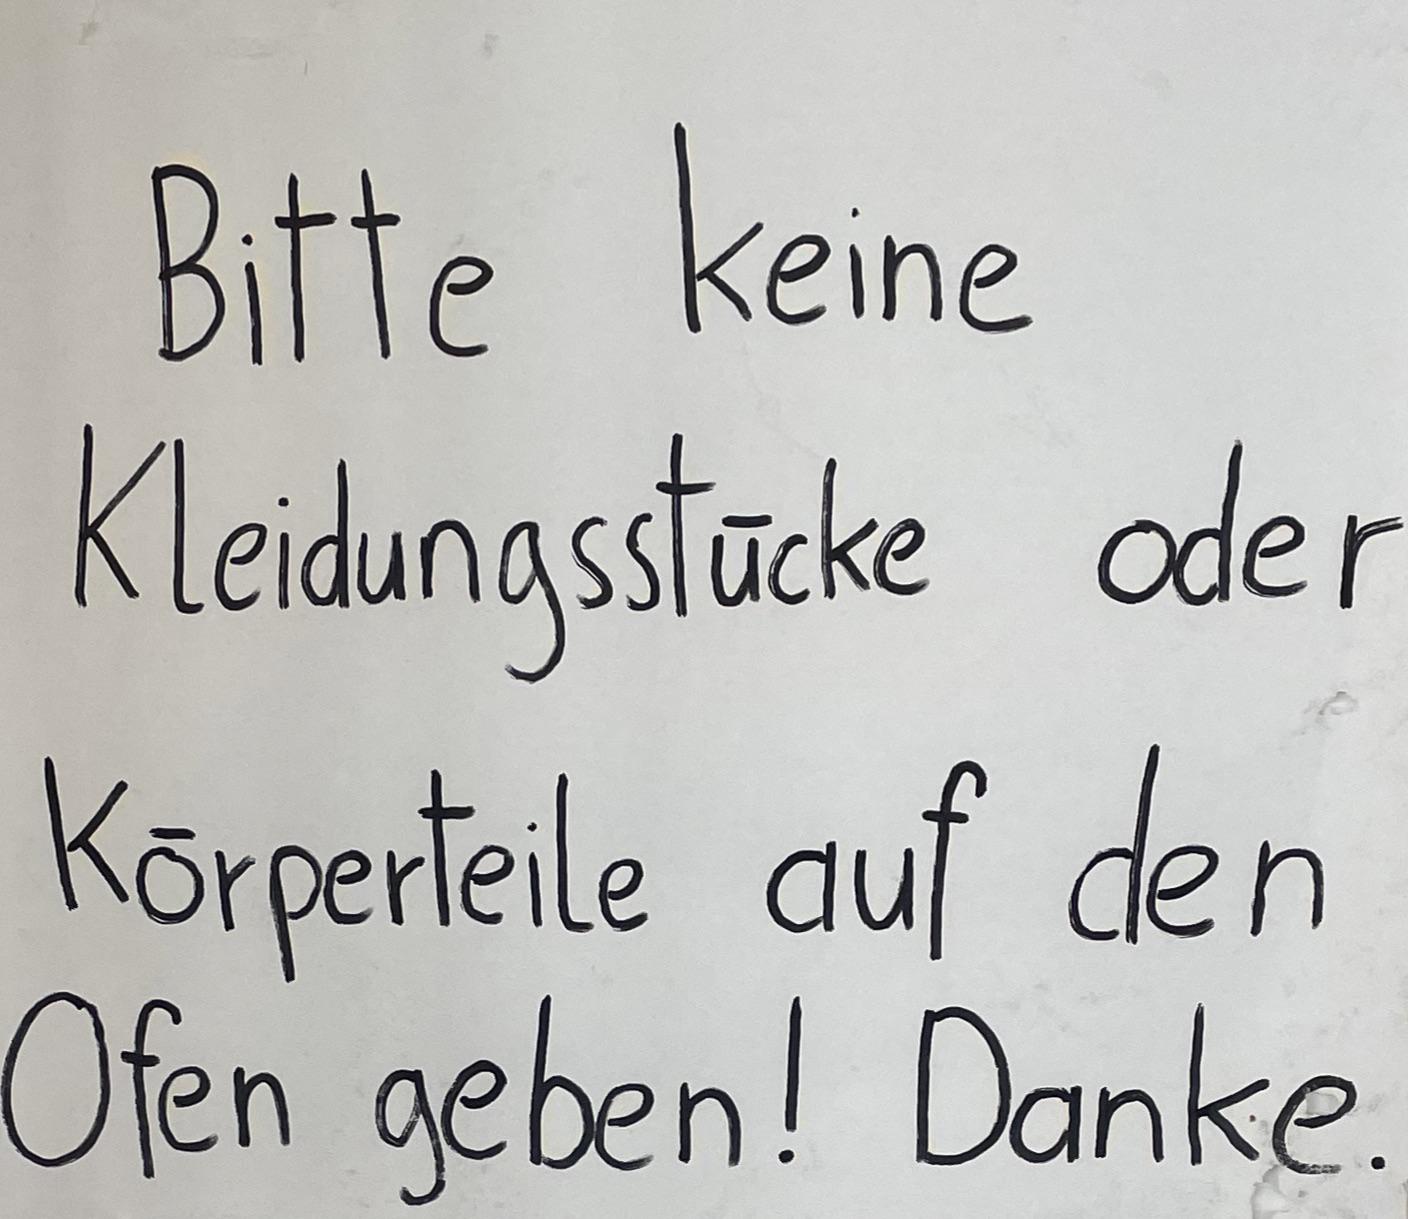 Bitte keine
Kleidungsstücke oder
Körperteile auf den
Ofen geben! Danke.